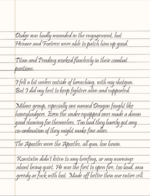 Dodge was badly wounded in the engagement, but
Heiser and Fortner were able to patch him up good.
Titan and Freeling worked flawlessly in their combat
positions.
I felt a bit useless outside of breaching, with my shotgun.
But I did my best to keep fighter alive and supported.
Milner group, especially our named Dragon fought like
honeybadgers. Even the under equipped men made a damn
good showing for themselves. Too bad they barely got any
co-ordination of they might make fine allies.
The Apostles were the Apostles, all gun, low brain.
Kerstein didn't listen to any briefing, or any warnings
about being quiet. He was the first to open fire, too loud, and
greedy as fuck with loot. Made off better than our entire cell.